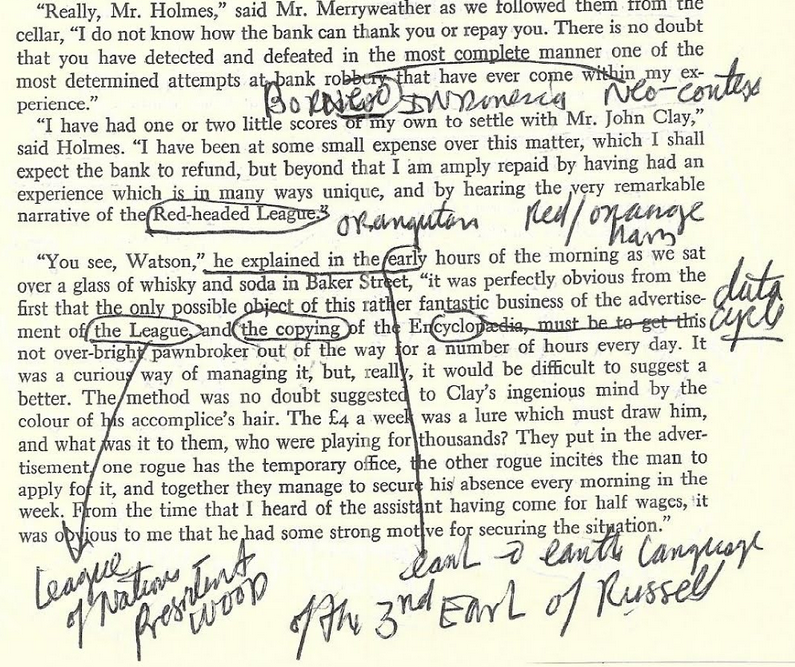 “Really, Mr. Holmes,” said Mr. Merryweather as we followed them from the
cellar, “I do not know how the bank can thank you or repay you. There is no doubt
that you have detected and defeated in the most complete manner one of the
most determined attempts at bank robbery that have ever come within my ex-
perience.”
Borneo Indonesia Neo-contess
“I have had one or two little scores of my own to settle with Mr. John Clay,”
said Holmes. “I have been at some small expense over this matter, which I shall
expect the bank to refund, but beyond that I am amply repaid by having had an
experience which is in many ways unique, and by hearing the very remarkable
narrative of the Red-headed League.”
orangutan Red/orange
hair
“You see, Watson,” he explained in the early hours of the morning as we sat
over a glass of whisky and soda in Baker Street, “it was perfectly obvious from the
first that the only possible object of this rather fantastic business of the advertise-
ment of the League, and the copying of the Encyclopædia, must be to get this
data
cycle
not over-bright pawnbroker out of the way for a number of hours every day. It
was a curious way of managing it, but, really, it would be difficult to suggest a
better. The method was no doubt suggested to Clay’s ingenious mind by the
colour of his accomplice’s hair. The £4 a week was a lure which must draw him,
and what was it to them, who were playing for thousands? They put in the adver-
tisement, one rogue has the temporary office, the other rogue incites the man to
apply for it, and together they manage to secure his absence every morning in the
week. From the time that I heard of the assistant having come for half wages, it
was obvious to me that he had some strong motive for securing the situation.”
League
of Nations
President
WOOD
earth Language
of the 3rd Earl of Russell